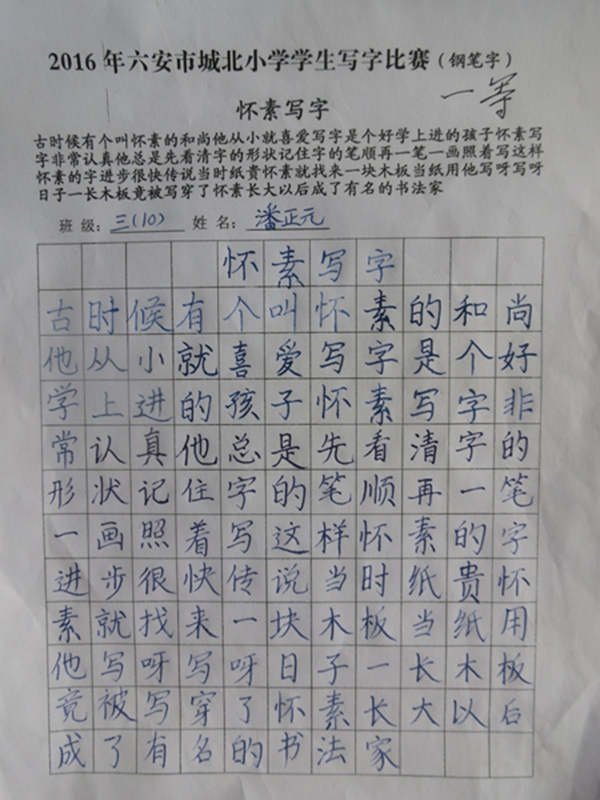 2016年六安市城北小学学生写字比赛（钢笔字）
一等
怀素写字
古时候有个叫怀素的和尚他从小就喜爱写字是个好学上进的孩子怀素写
字非常认真他总是先看清字的形状记住字的笔顺再一笔一画照着写这样
怀素的字进步很快传说当时纸贵怀素就找来一块木板当纸用他写呀写呀
日子一长木板竟被写穿了怀素长大以后成了有名的书法家
班级：三(10) 姓名：潘正元
怀素写字
古时候有个叫怀素的和尚
他从小就喜爱写字是个好
学上进的孩子怀素写字非
常认真他总是先看清字的
形状记住字的笔顺再一笔
一画照着写这样怀素的字
进步很快传说当时纸贵怀
素就找来一块木板当纸用
他写呀写呀日子一长木板
竟被写穿了怀素长大以后
成了有名的书法家